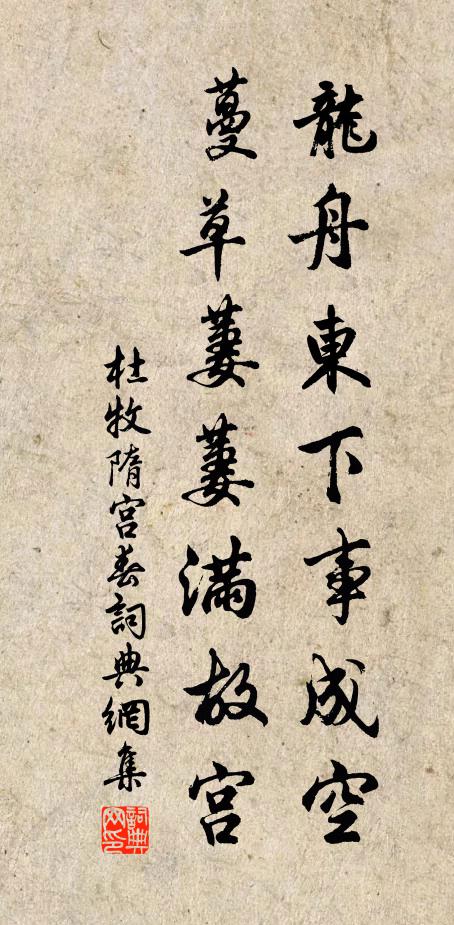 龍舟東下事成空
蔓草萋萋滿故宮
杜牧隋宮春詞典網集
詞典网印